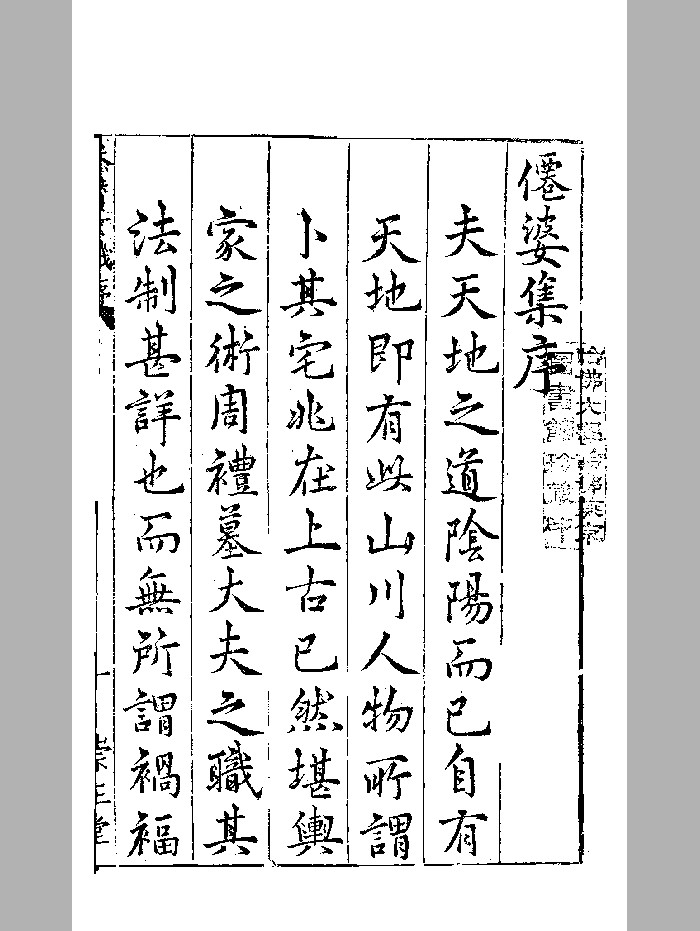 僊婆集序
夫天地之道陰陽而已自有
天地即有此山川人物所謂
卜其宅兆在上古已然堪輿
家之術周禮墓大夫之職其
法制甚詳也而無所謂禍福
崇正堂
圖書館珍藏印
哈佛大學